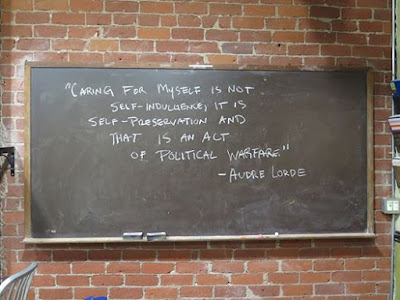 "CARING FOR MYSELF IS NOT
SELF-INDULGENCE, IT IS
SELF-PRESERVATION AND
THAT IS AN ACT
OF POLITICAL WARFARE."
-AUDRE LORDE